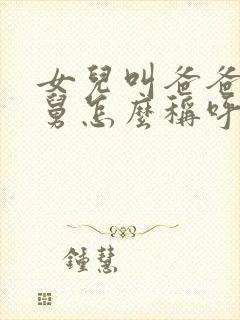 女兒叫爸爸
舅怎麼稱呼
鍾慧